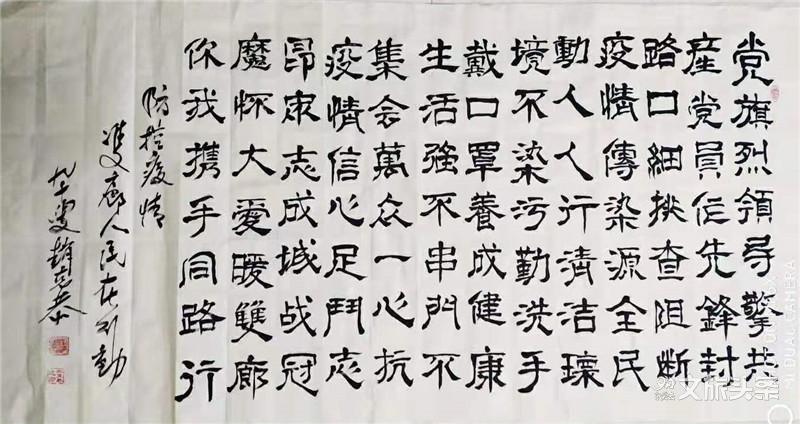 党旗烈領导擎共
産党員作先鋒封
路口細挨查阻断
疫情傳染源全民
動人人行清洁環
境不染污勤洗手
戴口罩養成健康
生活強不串門不
集会萬众一心抗
疫情信心足鬥志
昂众志成城战冠
魔怀大愛暖雙廊
你我携手同路行
防控疫情
雙廊人民在行動
叟趙
MI DUAL CAMERA
文旅头条